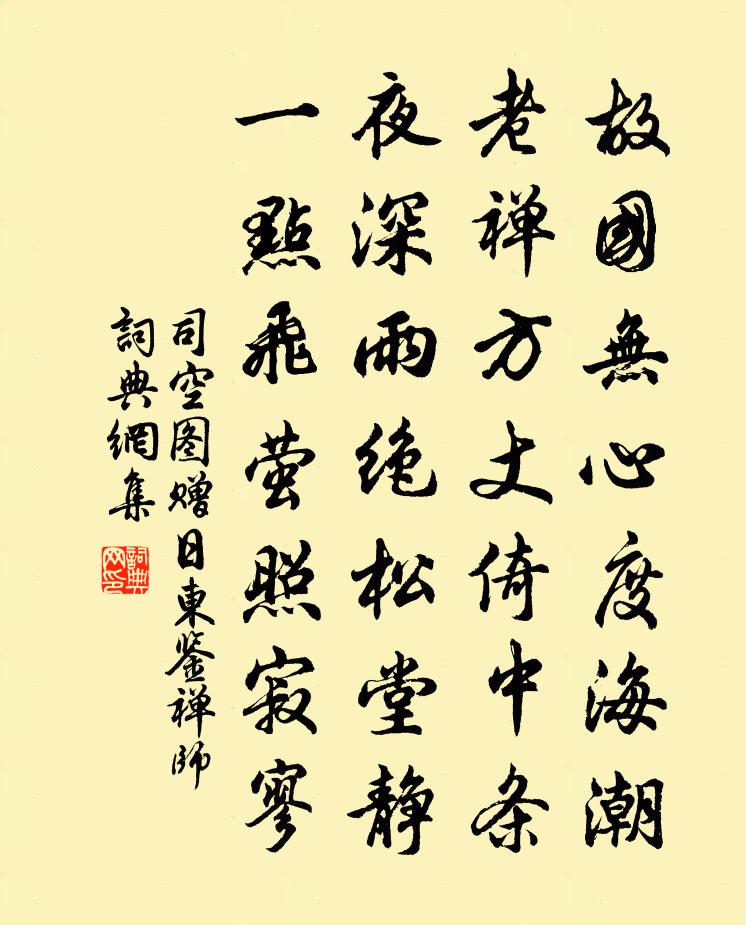 故國無心度海潮
老禅方丈倚中条
夜深雨绝松堂静
一點飛萤照寂寥
司空图赠日東鉴禅师
詞典網集
詞典网印